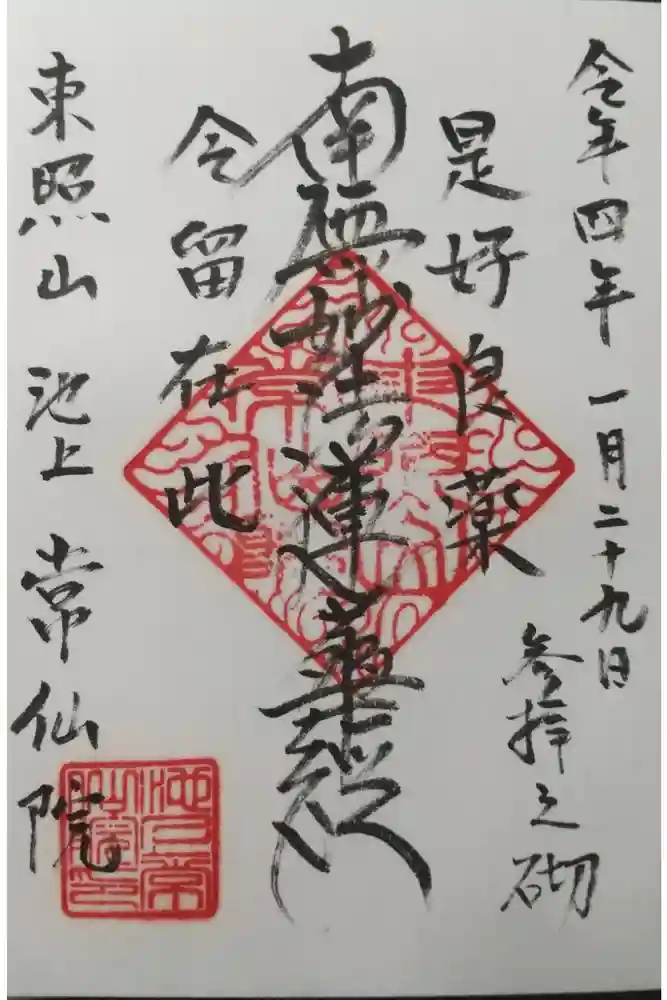 令年四年 一月二十九日
参拝之砌
是好良薬
南無妙法蓮華経
今留在此
東照山 池上 常仙院